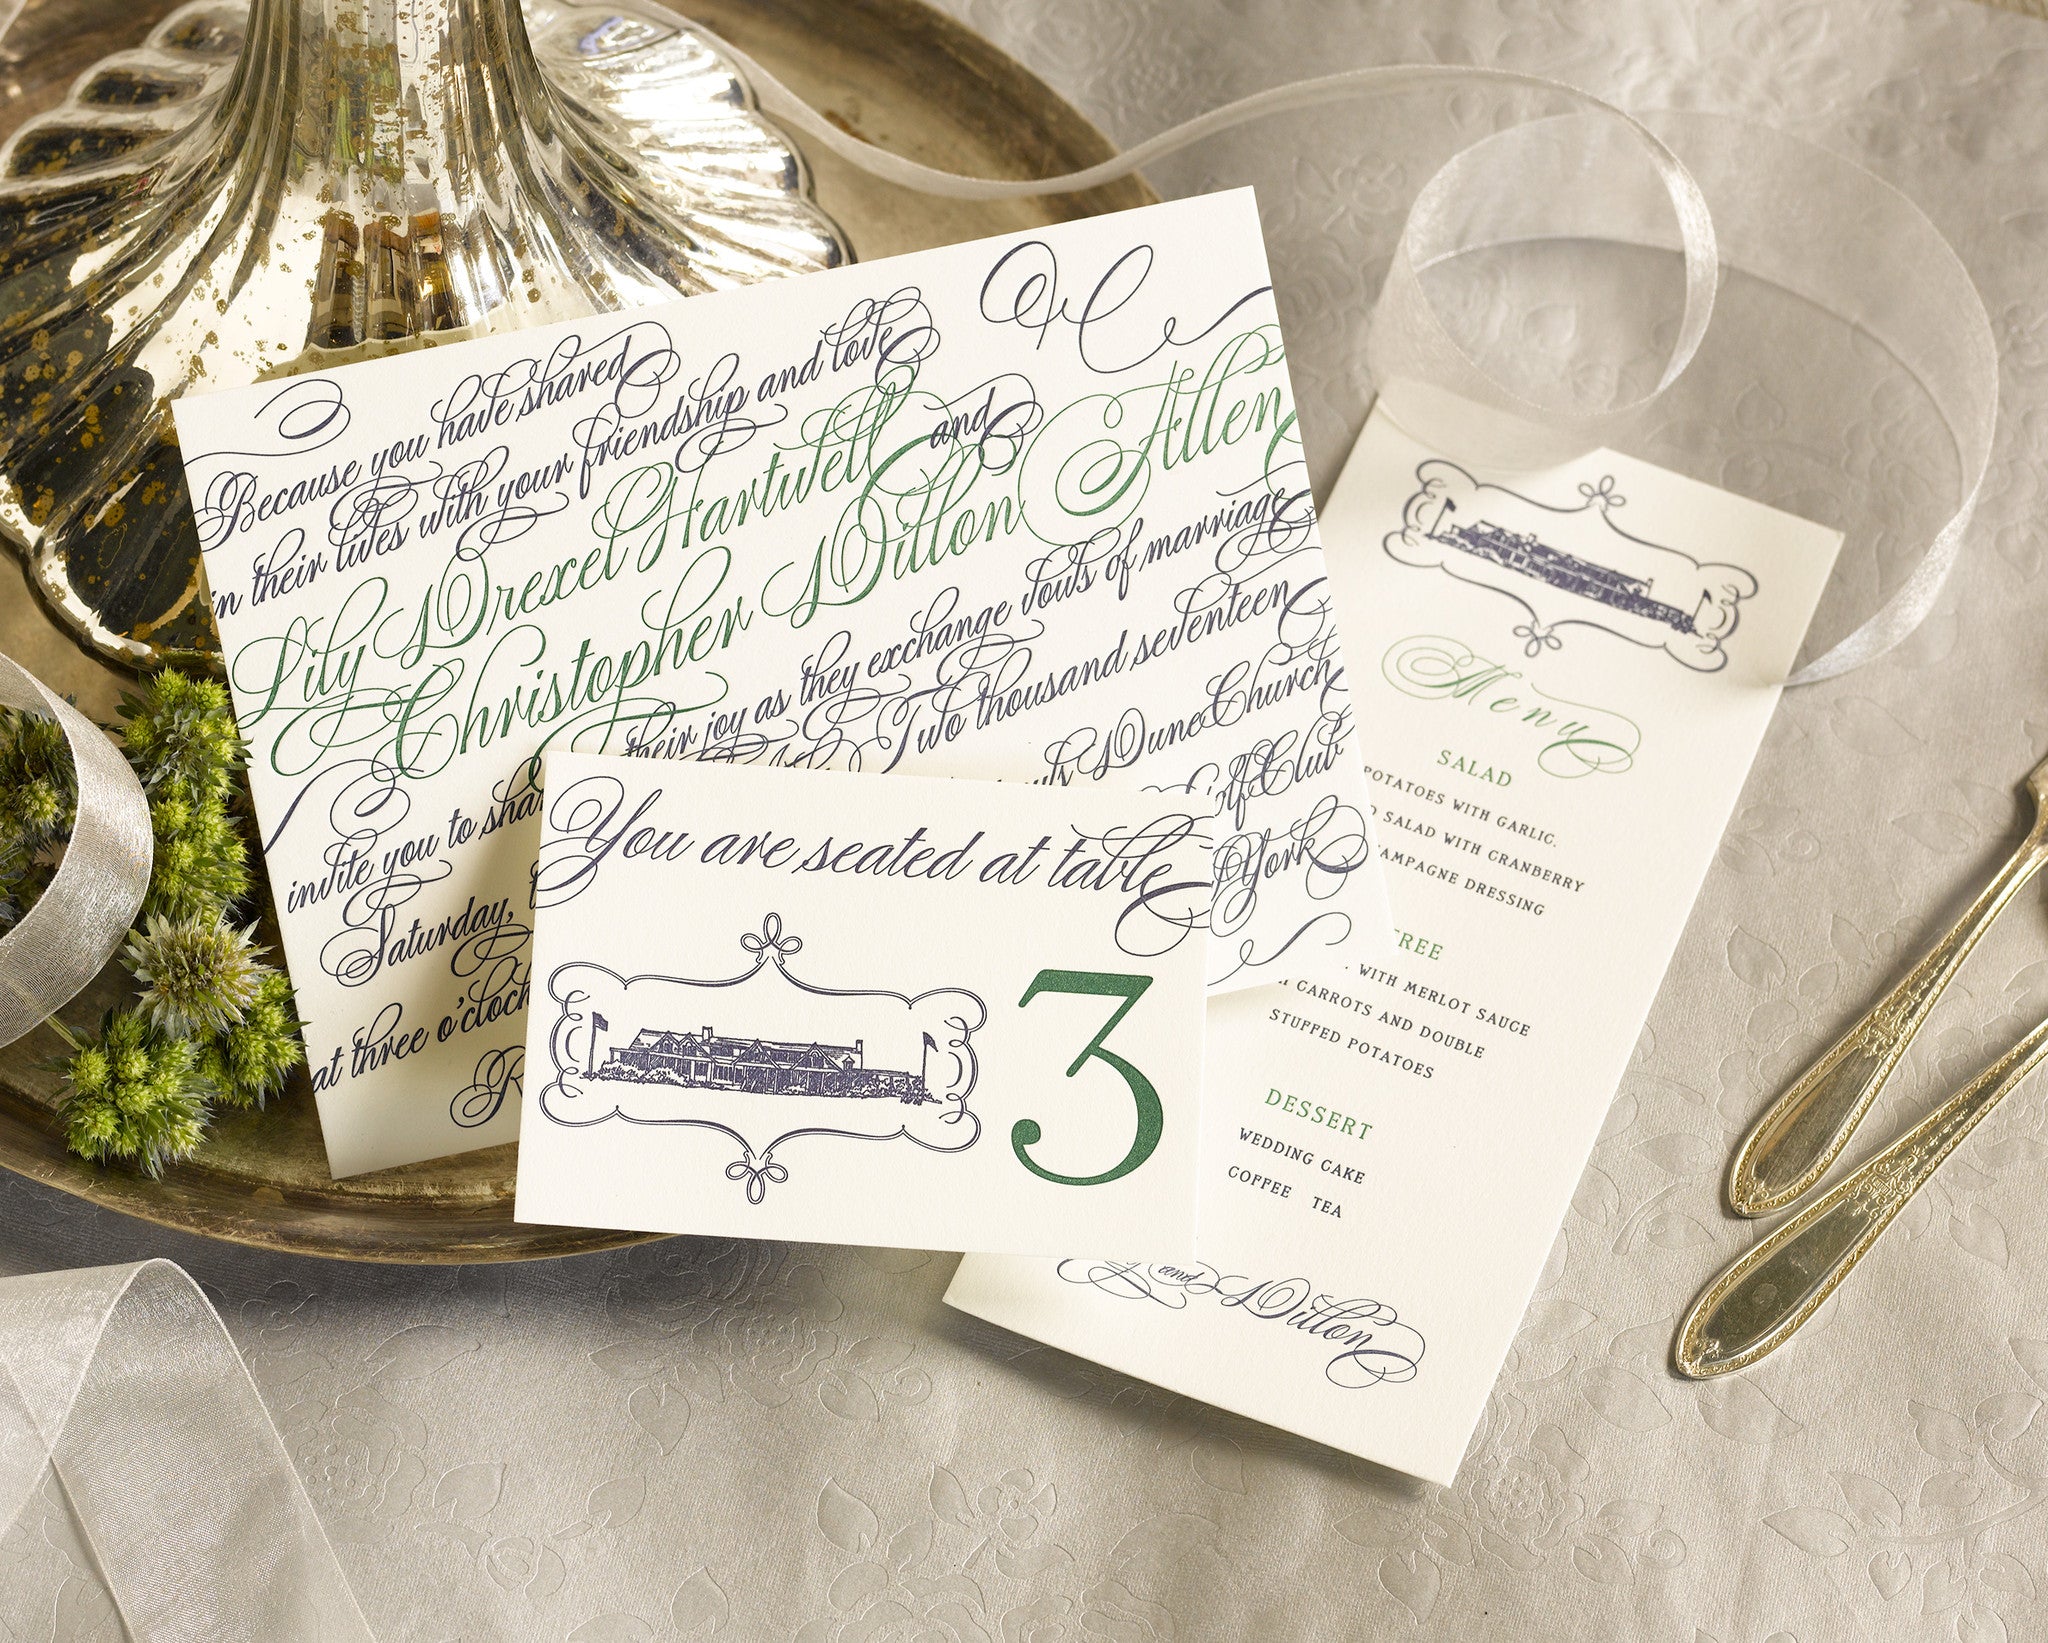 Because you have shared
in their lives with your friendship and love
Lily Drexel Hartwell and
Christopher Dillon Allen
invite you to their joy as they exchange vows of marriage
Saturday, Two thousand seventeen
at three o'clock Dune Church
Golf Club
York
You are seated at table
3
Menu
SALAD
POTATOES WITH GARLIC.
SALAD WITH CRANBERRY
CHAMPAGNE DRESSING
ENTREE
WITH MERLOT SAUCE
CARROTS AND DOUBLE
STUFFED POTATOES
DESSERT
WEDDING CAKE
COFFEE TEA
and Dillon